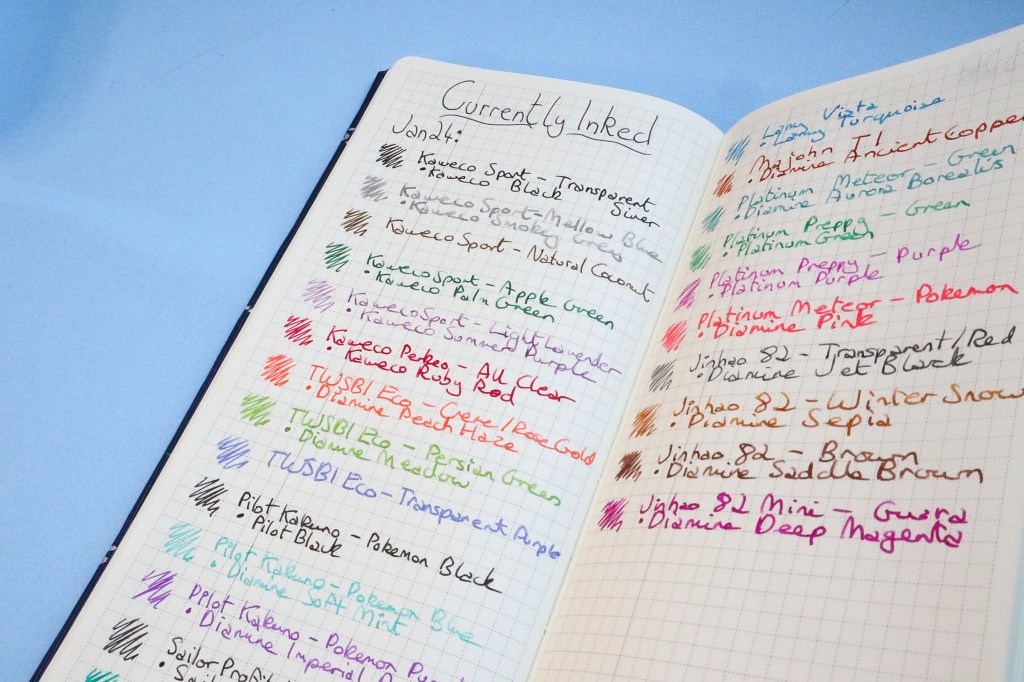 Currently Inked
Jan24:
Kaweco Sport - Transparent
• Kaweco Black Silver
Kaweco Sport - Mellow Blue
• Kaweco Smokey Grey
Kaweco Sport - Natural Coconut
Kaweco Sport - Apple Green
• Kaweco Palm Green
Kaweco Sport - Light Lavender
• Kaweco Summer Purple
Kaweco Perkeo - All Clear
• Kaweco Ruby Red
TWSBI Eco - Creme/Rose Gold
• Diamine Peach Haze
TWSBI Eco - Persian Green
• Diamine Meadow
TWSBI Eco - Transparent Purple
Pilot Kakuno - Pokemon Black
• Pilot Black
Pilot Kakuno - Pokemon Blue
• Diamine Soft Mint
Pilot Kakuno - Pokemon
• Diamine Imperial
Sailor
Lamy Vista
• Lamy Turquoise
Majohn T1
• Diamine Ancient Copper
Platinum Meteor - Green
• Diamine Aurora Borealis
Platinum Preppy - Green
• Platinum Green
Platinum Preppy - Purple
• Platinum Purple
Platinum Meteor - Pokemon
• Diamine Pink
Jinhao 82 - Transparent/Red
• Diamine Jet Black
Jinhao 82 - Winter Snow
• Diamine Sepia
Jinhao 82 - Brown
• Diamine Saddle Brown
Jinhao 82 Mini - Guara
• Diamine Deep Magenta